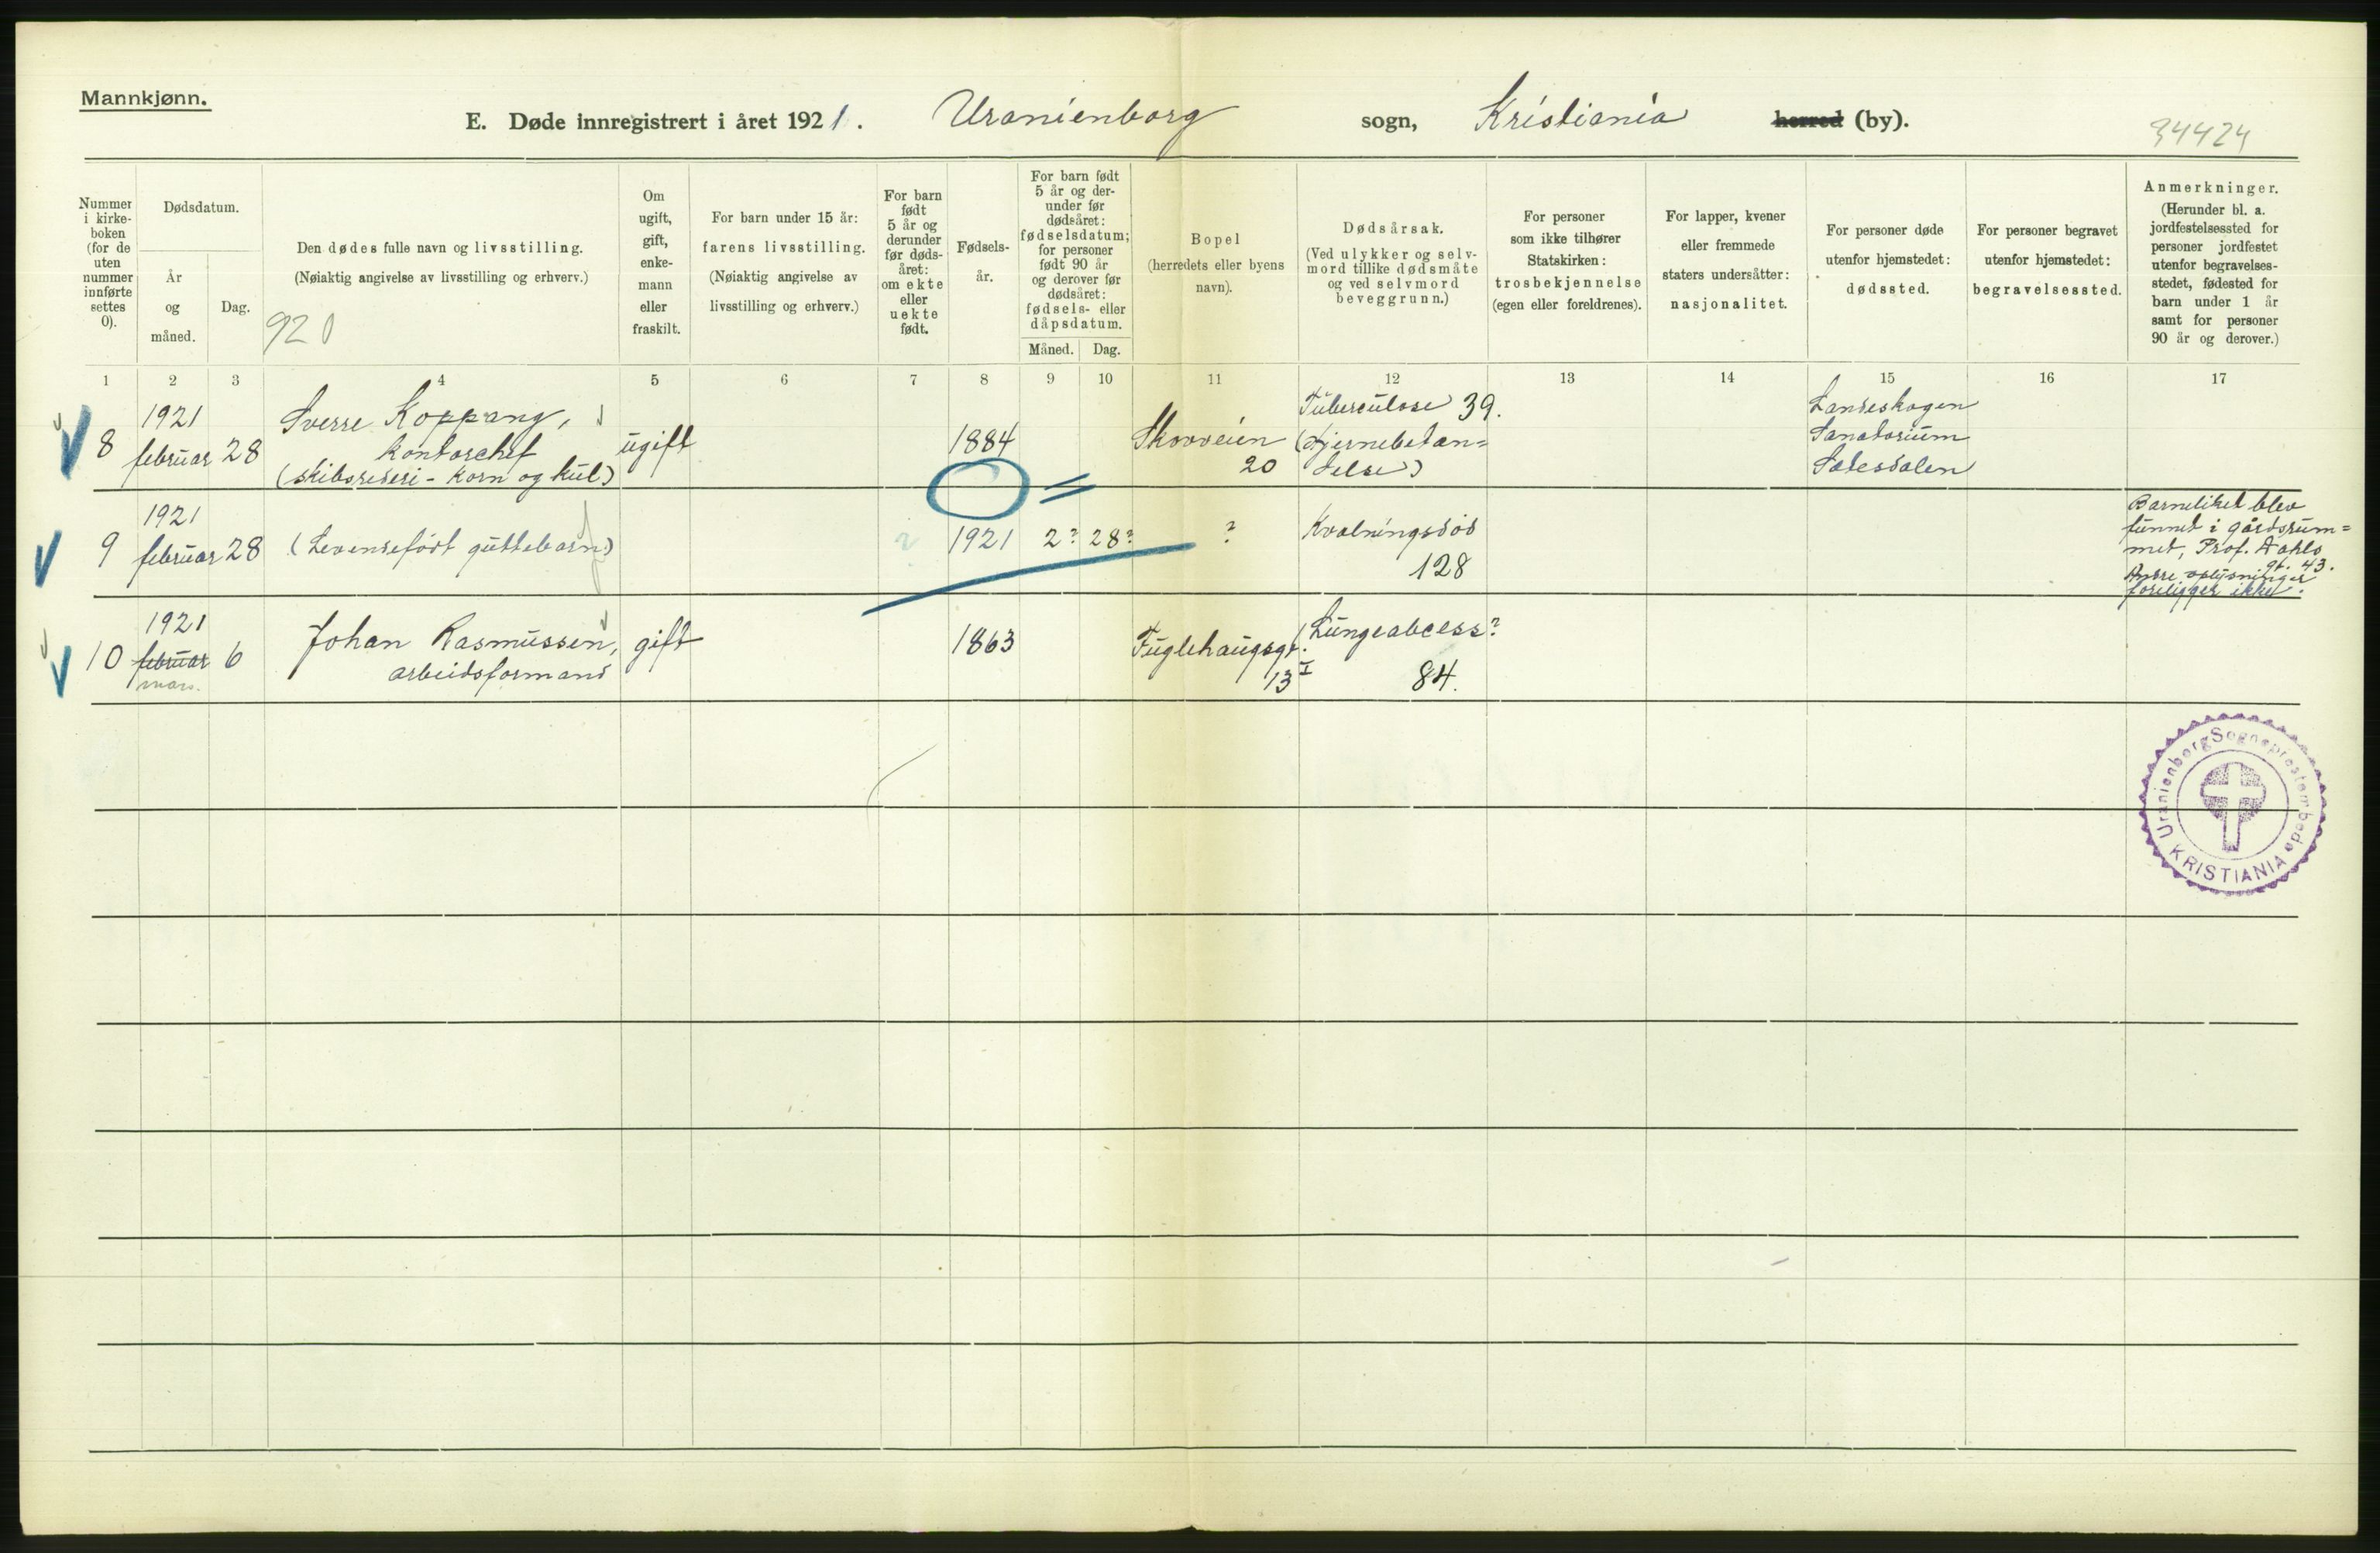 Mannkjønn.
E. Døde innregistrert i året 1921. Uranienborg sogn, Kristiania herred (by).
34424
Nummer i kirke- boken (for de uten nummer innførte settes 0).
Dødsdatum.
År og måned.
Dag.
Den dødes fulle navn og livsstilling.
(Nøiaktig angivelse av livsstilling og erhverv.)
920
Om ugift, gift, enke- mann eller fraskilt.
For barn under 15 år:
farens livsstilling.
(Nøiaktig angivelse av
livsstilling og erhverv.)
For barn født 5 år og derunder før døds- året: om ekte eller uekte født.
Fødsels- år.
For barn født 5 år og der- under før dødsåret: fødselsdatum; for personer født 90 år og derover før dødsåret: fødsels- eller dåpsdatum.
Måned. Dag.
Bopel
(herredets eller byens
navn).
Dødsårsak.
(Ved ulykker og selv-
mord tillike dødsmåte
og ved selvmord
beveggrunn.)
For personer
som ikke tilhører
Statskirken:
trosbekjennelse
(egen eller foreldrenes).
For lapper, kvener
eller fremmede
staters undersåtter:
nasjonalitet.
For personer døde
utenfor hjemstedet:
dødssted.
For personer begravet
utenfor hjemstedet:
begravelsessted.
Anmerkninger.
(Herunder bl. a.
jordfestelsessted for
personer jordfestet
utenfor begravelses-
stedet, fødested for
barn under 1 år
samt for personer
90 år og derover.)
1 2 3 4 5 6 7 8 9 10 11 12 13 14 15 16 17
8 1921 februar 28
Sverre Koppang,
kontorchef
(skibsrederi - korn og kul)
ugift
1884
Skovveien
20
Tuberculose 39.
(Hjernebetæn=
delse)
Landeskogen
Sanatorium
Sætesdalen
9 1921 februar 28
(Levendefödt guttebarn)
? 1921 2? 28? ?
Kvælningsdöd
128
Barneliket blev
funnet i gårdsrum=
met, Prof. Dahls
gt. 43.
Andre oplysninger
foreligger ikke.
10 1921 februar 6
mars.
Johan Rasmussen,
arbeidsformand
gift
1863
Fuglehaugsgt.
13 I
Lungeabcess?
84.
Uranienborg Sogneprestembede
KRISTIANIA